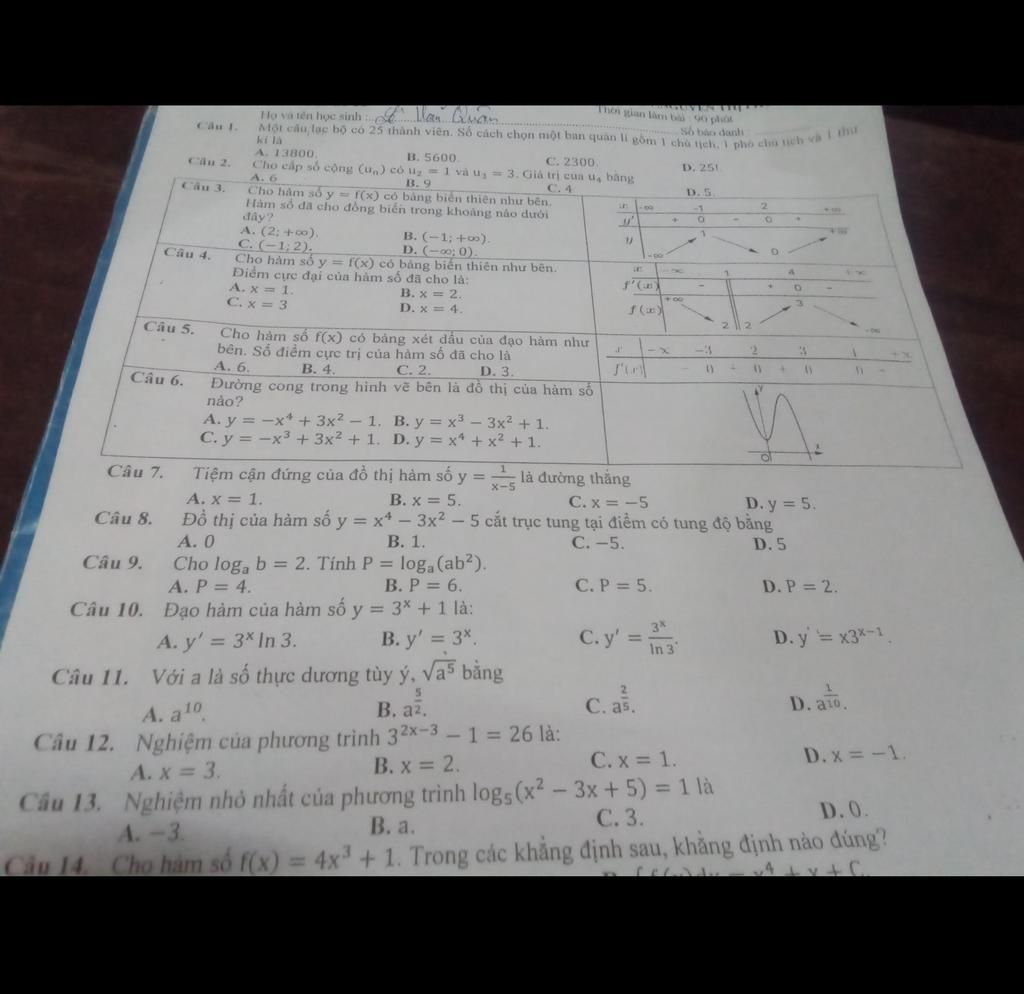 Họ và tên học sinh : Lê Văn Quân
Thời gian làm bài : 90 phút
Số báo danh
Câu 1. Một câu lạc bộ có 25 thành viên. Số cách chọn một ban quản lí gồm 1 chủ tịch, 1 phó chủ tịch và 1 thư
kí là
A. 13800. B. 5600. C. 2300. D. 25!.
Câu 2. Cho cấp số cộng (uₙ) có u₂ = 1 và u₃ = 3. Giá trị của u₄ bằng
A. 6 B. 9 C. 4 D. 5.
Câu 3. Cho hàm số y = f(x) có bảng biến thiên như bên.
Hàm số đã cho đồng biến trong khoảng nào dưới
đây?
A. (2; +∞). B. (−1; +∞).
C. (−1; 2). D. (−∞; 0).
x −∞ −1 2 +∞
y' + 0 − 0 +
y −∞ 1 0 +∞
Câu 4. Cho hàm số y = f(x) có bảng biến thiên như bên.
Điểm cực đại của hàm số đã cho là:
A. x = 1. B. x = 2.
C. x = 3 D. x = 4.
x −∞ 1 4 +∞
f'(x) − + 0 −
f(x) +∞ 2 2 3 −∞
Câu 5. Cho hàm số f(x) có bảng xét dấu của đạo hàm như
bên. Số điểm cực trị của hàm số đã cho là
A. 6. B. 4. C. 2. D. 3.
f'(x) − 0 + 0 + 0 0 −
Câu 6. Đường cong trong hình vẽ bên là đồ thị của hàm số
nào?
A. y = −x⁴ + 3x² − 1. B. y = x³ − 3x² + 1.
C. y = −x³ + 3x² + 1. D. y = x⁴ + x² + 1.
y
O x
Câu 7. Tiệm cận đứng của đồ thị hàm số y = 1/(x−5) là đường thẳng
A. x = 1. B. x = 5. C. x = −5 D. y = 5.
Câu 8. Đồ thị của hàm số y = x⁴ − 3x² − 5 cắt trục tung tại điểm có tung độ bằng
A. 0 B. 1. C. −5. D. 5
Câu 9. Cho logₐ b = 2. Tính P = logₐ(ab²).
A. P = 4. B. P = 6. C. P = 5. D. P = 2.
Câu 10. Đạo hàm của hàm số y = 3ˣ + 1 là:
A. y' = 3ˣ ln 3. B. y' = 3ˣ. C. y' = 3ˣ/ln 3. D. y' = x3ˣ⁻¹.
Câu 11. Với a là số thực dương tùy ý, √a⁵ bằng
A. a¹⁰. B. a^(5/2). C. a^(2/5). D. a^(1/10).
Câu 12. Nghiệm của phương trình 3²ˣ⁻³ − 1 = 26 là:
A. x = 3. B. x = 2. C. x = 1. D. x = −1.
Câu 13. Nghiệm nhỏ nhất của phương trình log₅(x² − 3x + 5) = 1 là
A. −3. B. a. C. 3. D. 0.
Câu 14. Cho hàm số f(x) = 4x³ + 1. Trong các khẳng định sau, khẳng định nào đúng?